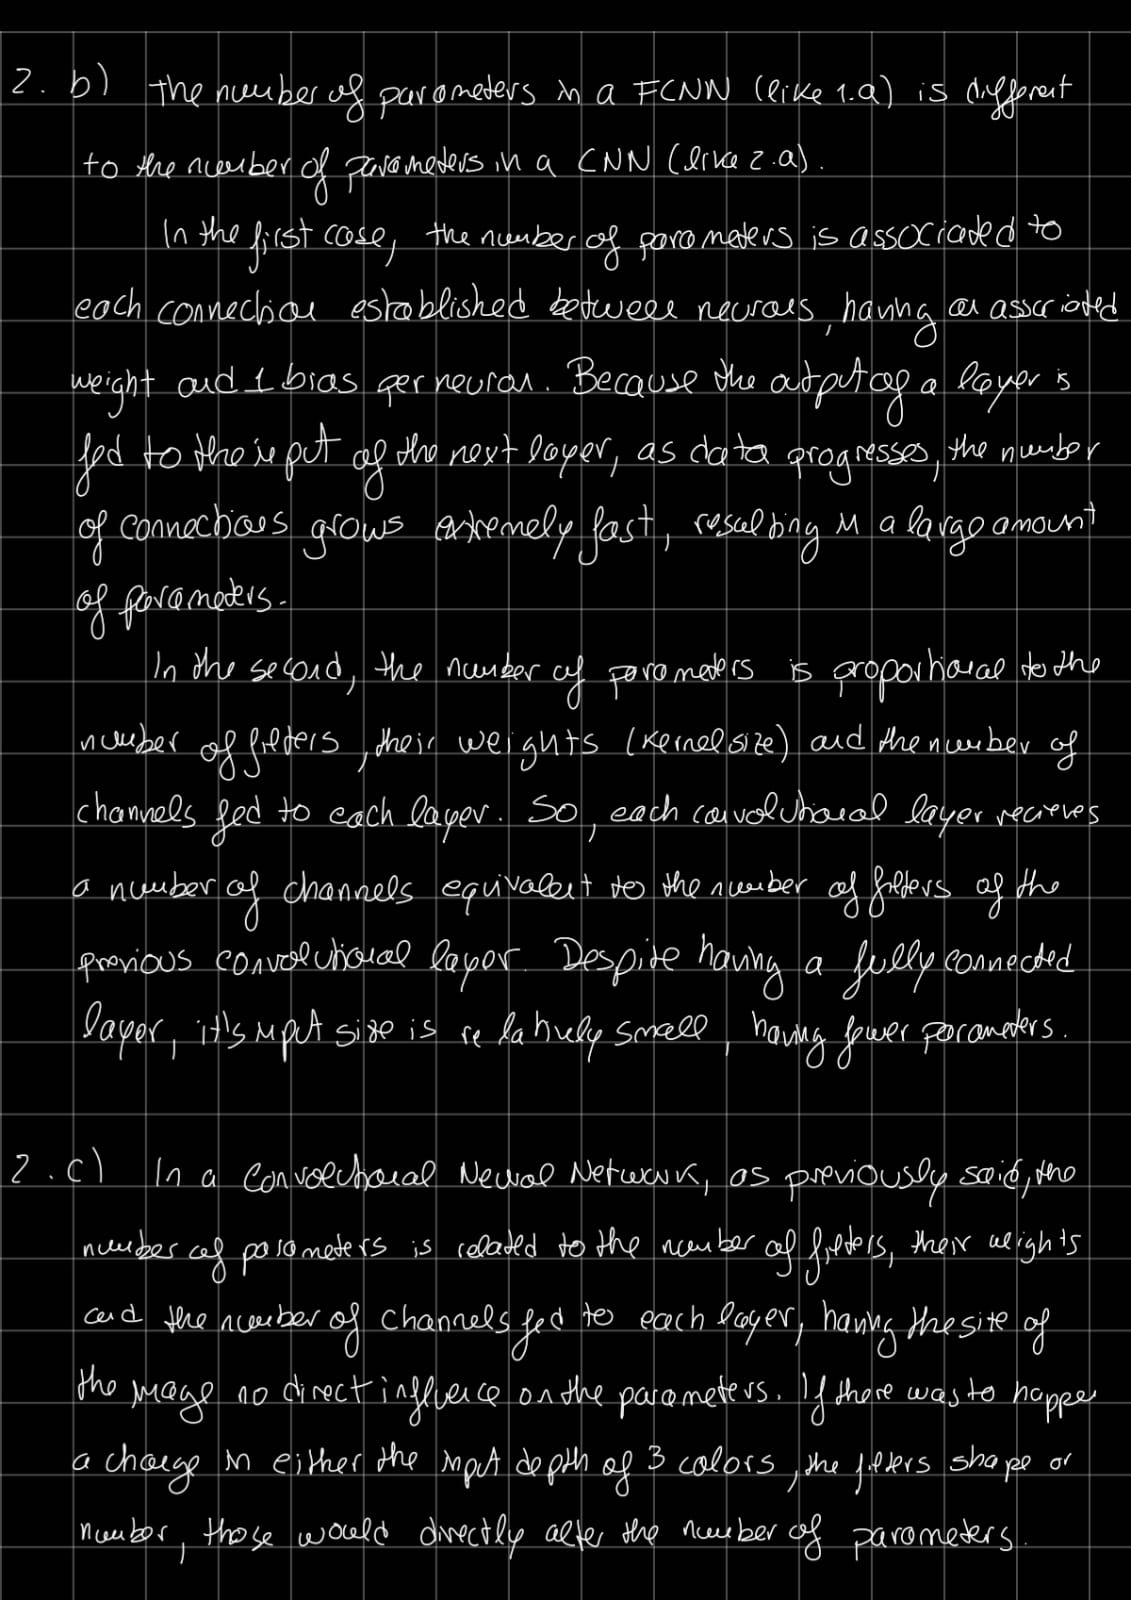 2. b) The number of parameters in a FCNN (like 1.a) is different
to the number of parameters in a CNN (like 2.a).
In the first case, the number of parameters is associated to
each connection established between neurons, having an associated
weight and 1 bias per neuron. Because the output of a layer is
fed to the input of the next layer, as data progresses, the number
of connections grows extremely fast, resulting in a large amount
of parameters.
In the second, the number of parameters is proportional to the
number of filters, their weights (kernel size) and the number of
channels fed to each layer. So, each convolutional layer recieves
a number of channels equivalent to the number of filters of the
previous convolutional layer. Despite having a fully connected
layer, it's input size is relatively small, having fewer parameters.
2. c) In a Convolutional Neural Network, as previously said, the
number of parameters is related to the number of filters, their weights
and the number of channels fed to each layer, having the size of
the image no direct influence on the parameters. If there was to happen
a change in either the input depth of 3 colors, the filters shape or
number, those would directly alter the number of parameters.